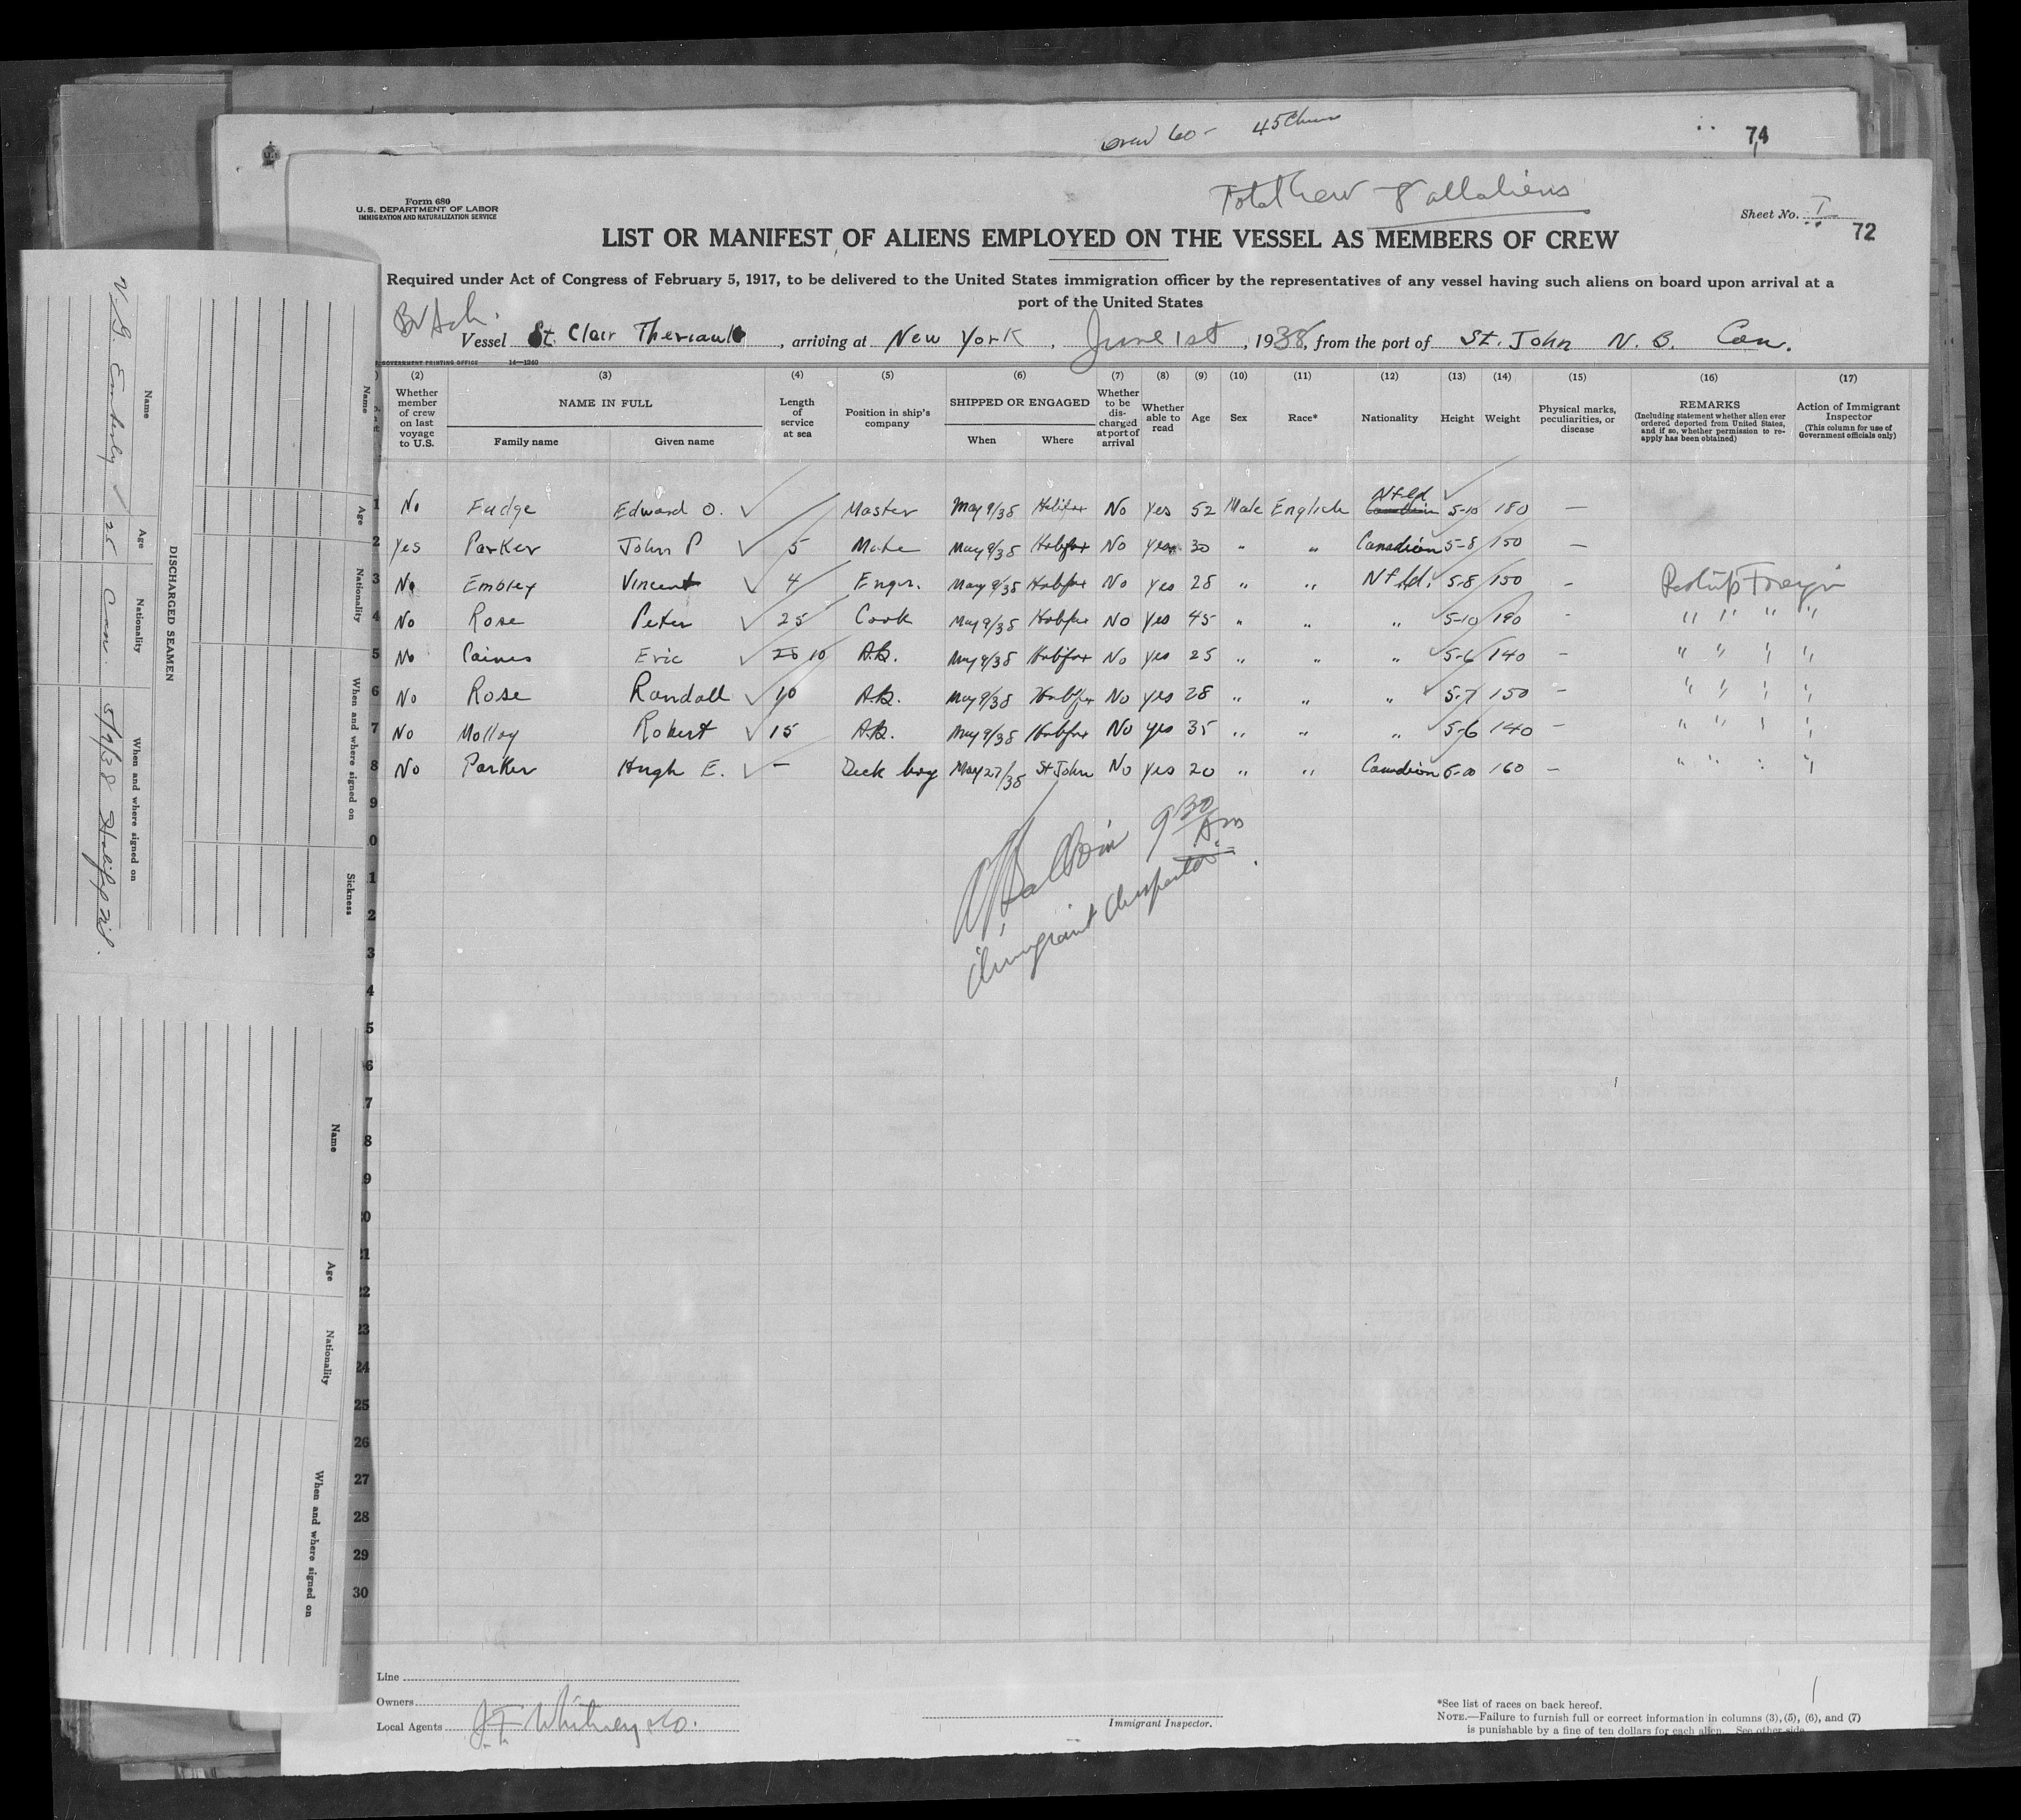 crew 60-
74
Total Crew 8 all aliens
Form 680
U.S. DEPARTMENT OF LABOR
IMMIGRATION AND NATURALIZATION SERVICE
Sheet No. I
72
LIST OR MANIFEST OF ALIENS EMPLOYED ON THE VESSEL AS MEMBERS OF CREW
Required under Act of Congress of February 5, 1917, to be delivered to the United States immigration officer by the representatives of any vessel having such aliens on board upon arrival at a
port of the United States
Br Sch.
Vessel St. Clair Theriault, arriving at New York, June 1st, 1938, from the port of St. John N. B. Can.
GOVERNMENT PRINTING OFFICE 14—1240
(2) (3) (4) (5) (6) (7) (8) (9) (10) (11) (12) (13) (14) (15) (16) (17)
Whether member of crew on last voyage to U.S. NAME IN FULL Family name Given name Length of service at sea Position in ship's company SHIPPED OR ENGAGED When Where Whether to be discharged at port of arrival Whether able to read Age Sex Race* Nationality Height Weight Physical marks, peculiarities, or disease REMARKS (Including statement whether alien ever ordered deported from United States, and if so, whether permission to reapply has been obtained) Action of Immigrant Inspector (This column for use of Government officials only)
1 No Fudge Edward O. Master May 9/38 Halifax No Yes 52 Male English Nfld Canadian 5-10 180 —
2 Yes Parker John P 5 Mate May 9/38 Halifax No Yes 30 " " Canadian 5-8 150 —
3 No Embley Vincent 4 Engr. May 9/38 Halifax No Yes 28 " " Nfld. 5-8 150 - Foreign
4 No Rose Peter 25 Cook May 9/38 Halifax No Yes 45 " " " 5-10 190 - " " " "
5 No Caines Eric 10 A.B. May 9/38 Halifax No Yes 25 " " " 5-6 140 - " " " "
6 No Rose Randall 10 A.B. May 9/38 Halifax No Yes 28 " " " 5-7 150 - " " " "
7 No Molloy Robert 15 A.B. May 9/38 Halifax No Yes 35 " " " 5-6 140 - " " " "
8 No Parker Hugh E. — Deck boy May 27/38 St John No Yes 20 " " Canadian 6-00 160 - " " " "
9
0
1
2
3
4
5
6
7
8
9
20
21
22
23
24
25
26
27
28
29
30
9 30 Am
Immigrant Inspector
Line
Owners
Local Agents J.F. Whitney & Co.
Immigrant Inspector.
*See list of races on back hereof.
NOTE.—Failure to furnish full or correct information in columns (3), (5), (6), and (7)
is punishable by a fine of ten dollars for each alien. See other side.
DISCHARGED SEAMEN
Name Age Nationality When and where signed on
Can. 5/9/38 Halifax
Name Age Nationality When and where signed on Sickness
Name Age Nationality When and where signed on